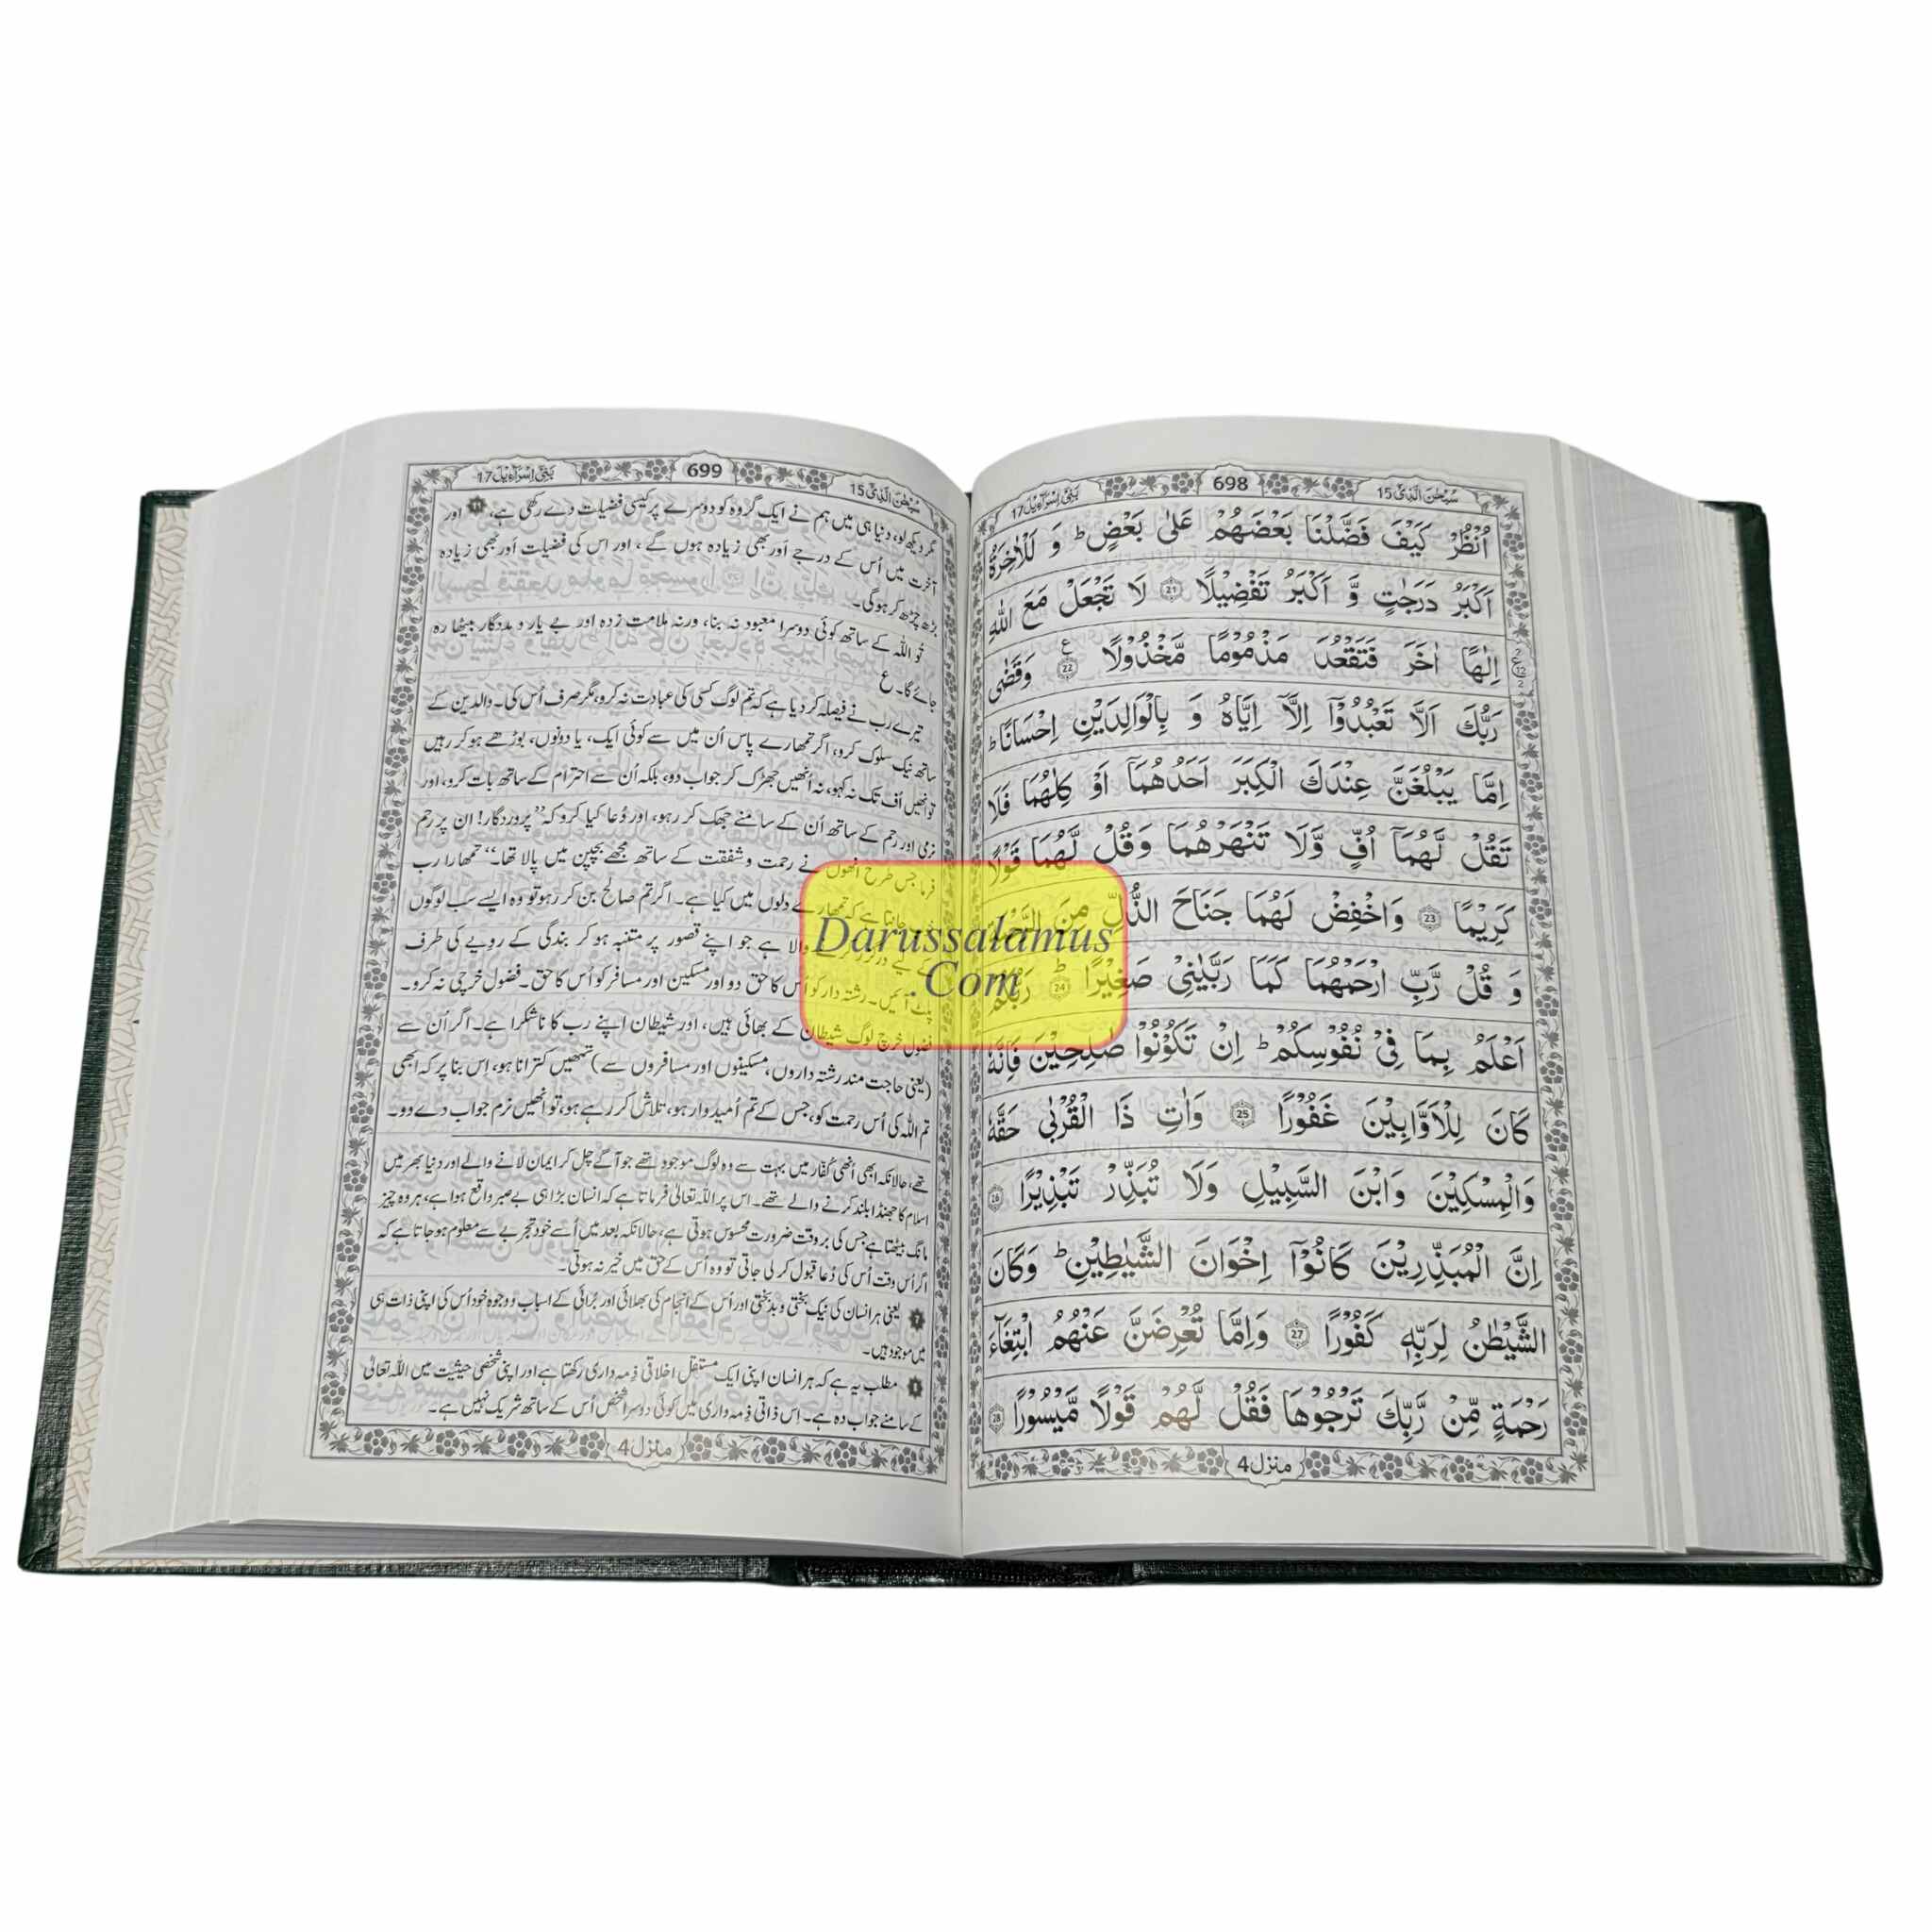 سُبْحٰنَ الَّذِیْۤ 15
698
بَنِیْۤ اِسْرَآءِیْل 17
اُنْظُرْ كَیْفَ فَضَّلْنَا بَعْضَهُمْ عَلٰی بَعْضٍ ؕ وَ لَلْاٰخِرَةُ
اَكْبَرُ دَرَجٰتٍ وَّ اَكْبَرُ تَفْضِیْلًا 21 لَا تَجْعَلْ مَعَ اللّٰهِ
اِلٰهًا اٰخَرَ فَتَقْعُدَ مَذْمُوْمًا مَّخْذُوْلًا 22 وَقَضٰی
رَبُّكَ اَلَّا تَعْبُدُوْۤا اِلَّاۤ اِیَّاهُ وَ بِالْوَالِدَیْنِ اِحْسَانًا ؕ
اِمَّا یَبْلُغَنَّ عِنْدَكَ الْكِبَرَ اَحَدُهُمَاۤ اَوْ كِلٰهُمَا فَلَا
تَقُلْ لَّهُمَاۤ اُفٍّ وَّلَا تَنْهَرْهُمَا وَقُلْ لَّهُمَا قَوْلًا
كَرِیْمًا 23 وَاخْفِضْ لَهُمَا جَنَاحَ الذُّلِّ مِنَ
وَ قُلْ رَّبِّ ارْحَمْهُمَا كَمَا رَبَّیٰنِیْ صَغِیْرًا ؕ 24 رَبُّكُمْ
اَعْلَمُ بِمَا فِیْ نُفُوْسِكُمْ ؕ اِنْ تَكُوْنُوْا صٰلِحِیْنَ فَاِنَّهٗ
كَانَ لِلْاَوَّابِیْنَ غَفُوْرًا 25 وَاٰتِ ذَا الْقُرْبٰی حَقَّهٗ
وَالْمِسْكِیْنَ وَابْنَ السَّبِیْلِ وَلَا تُبَذِّرْ تَبْذِیْرًا 26
اِنَّ الْمُبَذِّرِیْنَ كَانُوْۤا اِخْوَانَ الشَّیٰطِیْنِ ؕ وَكَانَ
الشَّیْطٰنُ لِرَبِّهٖ كَفُوْرًا 27 وَاِمَّا تُعْرِضَنَّ عَنْهُمُ ابْتِغَآءَ
رَحْمَةٍ مِّنْ رَّبِّكَ تَرْجُوْهَا فَقُلْ لَّهُمْ قَوْلًا مَّیْسُوْرًا 28
منزل 4
سُبْحٰنَ الَّذِیْۤ 15
699
بَنِیْۤ اِسْرَآءِیْل 17
مگر دیکھ لو، دنیا ہی میں ہم نے ایک گروہ کو دوسرے پر کیسی فضیلت دے رکھی ہے، اور
آخرت میں اُس کے درجے اور بھی زیادہ ہوں گے، اور اس کی فضیلت اور بھی زیادہ
بڑھ چڑھ کر ہوگی۔
تُو اللہ کے ساتھ کوئی دوسرا معبود نہ بنا، ورنہ ملامت زدہ اور بے یار و مددگار بیٹھا رہ
جائے گا۔ ع
تیرے رب نے فیصلہ کر دیا ہے کہ تم لوگ کسی کی عبادت نہ کرو، مگر صرف اُس کی۔ والدین کے
ساتھ نیک سلوک کرو، اگر تمھارے پاس اُن میں سے کوئی ایک، یا دونوں، بوڑھے ہو کر رہیں
تو انھیں اُف تک نہ کہو، نہ انھیں جھڑک کر جواب دو، بلکہ اُن سے احترام کے ساتھ بات کرو، اور
نرمی اور رحم کے ساتھ اُن کے سامنے جھک کر رہو، اور دُعا کیا کرو کہ ”پروردگار! ان پر رحم
فرما جس طرح انھوں نے رحمت و شفقت کے ساتھ مجھے بچپن میں پالا تھا۔“ تمھارا رب
جانتا ہے کہ تمھارے دلوں میں کیا ہے۔ اگر تم صالح بن کر رہو تو وہ ایسے سب لوگوں
کے لیے درگزر کرنے والا ہے جو اپنے قصور پر متنبہ ہو کر بندگی کے رویے کی طرف
پلٹ آئیں۔ رشتہ دار کو اُس کا حق دو اور مسکین اور مسافر کو اُس کا حق۔ فضول خرچی نہ کرو۔
فضول خرچ لوگ شیطان کے بھائی ہیں، اور شیطان اپنے رب کا ناشکرا ہے۔ اگر اُن سے
(یعنی حاجت مند رشتہ داروں، مسکینوں اور مسافروں سے) تمھیں کترانا ہو، اِس بنا پر کہ ابھی
تم اللہ کی اُس رحمت کو، جس کے تم اُمیدوار ہو، تلاش کر رہے ہو، تو انھیں نرم جواب دے دو۔
تھے، حالانکہ ابھی انھی کفّار میں بہت سے وہ لوگ موجود تھے جو آگے چل کر ایمان لانے والے اور دنیا بھر میں
اسلام کا جھنڈا بلند کرنے والے تھے۔ اس پر اللہ تعالیٰ فرماتا ہے کہ انسان بڑا ہی بے صبر واقع ہوا ہے، ہر وہ چیز
مانگ بیٹھتا ہے جس کی بروقت ضرورت محسوس ہوتی ہے، حالانکہ بعد میں اُسے خود تجربے سے معلوم ہو جاتا ہے کہ
اگر اُس وقت اُس کی دُعا قبول کر لی جاتی تو وہ اُس کے حق میں خیر نہ ہوتی۔
یعنی ہر انسان کی نیک بختی و بدبختی اور اُس کے انجام کی بھلائی اور برائی کے اسباب و وجوہ خود اُس کی اپنی ذات ہی
میں موجود ہیں۔
مطلب یہ ہے کہ ہر انسان اپنی ایک مستقل اخلاقی ذِمہ داری رکھتا ہے اور اپنی شخصی حیثیت میں اللہ تعالیٰ
کے سامنے جواب دہ ہے۔ اِس ذاتی ذِمہ داری میں کوئی دوسرا شخص اُس کے ساتھ شریک نہیں ہے۔
منزل 4
Darussalamus
.Com